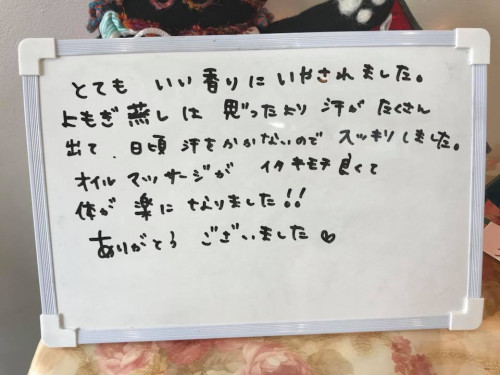 とても いい香りに いやされました。
よもぎ蒸しは 思ったより 汗が たくさん
出て、日頃 汗をかかないので スッキリしました。
オイルマッサージが イタキモチ良くて
体が 楽に なりました!!
ありがとう ございました♡